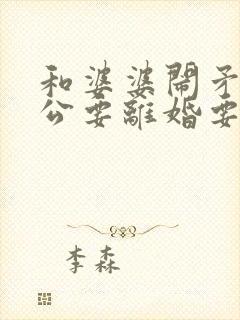 和婆婆鬧矛
公要離婚要
李森